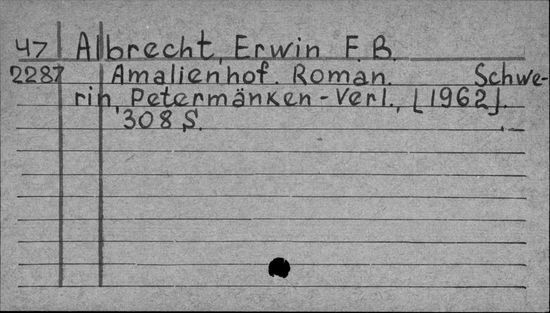 47 Albrecht, Erwin F. B.
2287 Amalienhof. Roman. Schwe-
rin, Petermänken-Verl., [1962].
308 S.